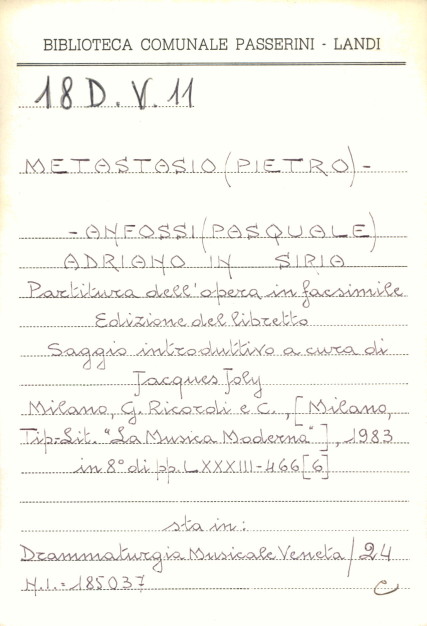 BIBLIOTECA COMUNALE PASSERINI - LANDI
18 D. V. 11
METASTASIO (PIETRO) -
- ANFOSSI (PASQUALE)
ADRIANO IN SIRIA
Partitura dell'opera in facsimile
Edizione del libretto
Saggio introduttivo a cura di
Jacques Joly
Milano, G. Ricordi e C., [Milano,
Tip-Lit. "La Musica Moderna"], 1983
in 8° di pp. LXXXIII-466 [6]
sta in:
Drammaturgia Musicale Veneta / 24
N.I. = 185037 C